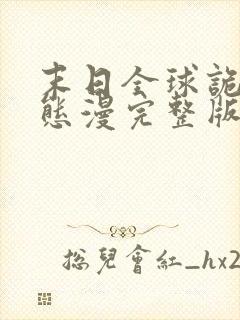 末日全球詭
態漫完整版
總兒會紅_hx2